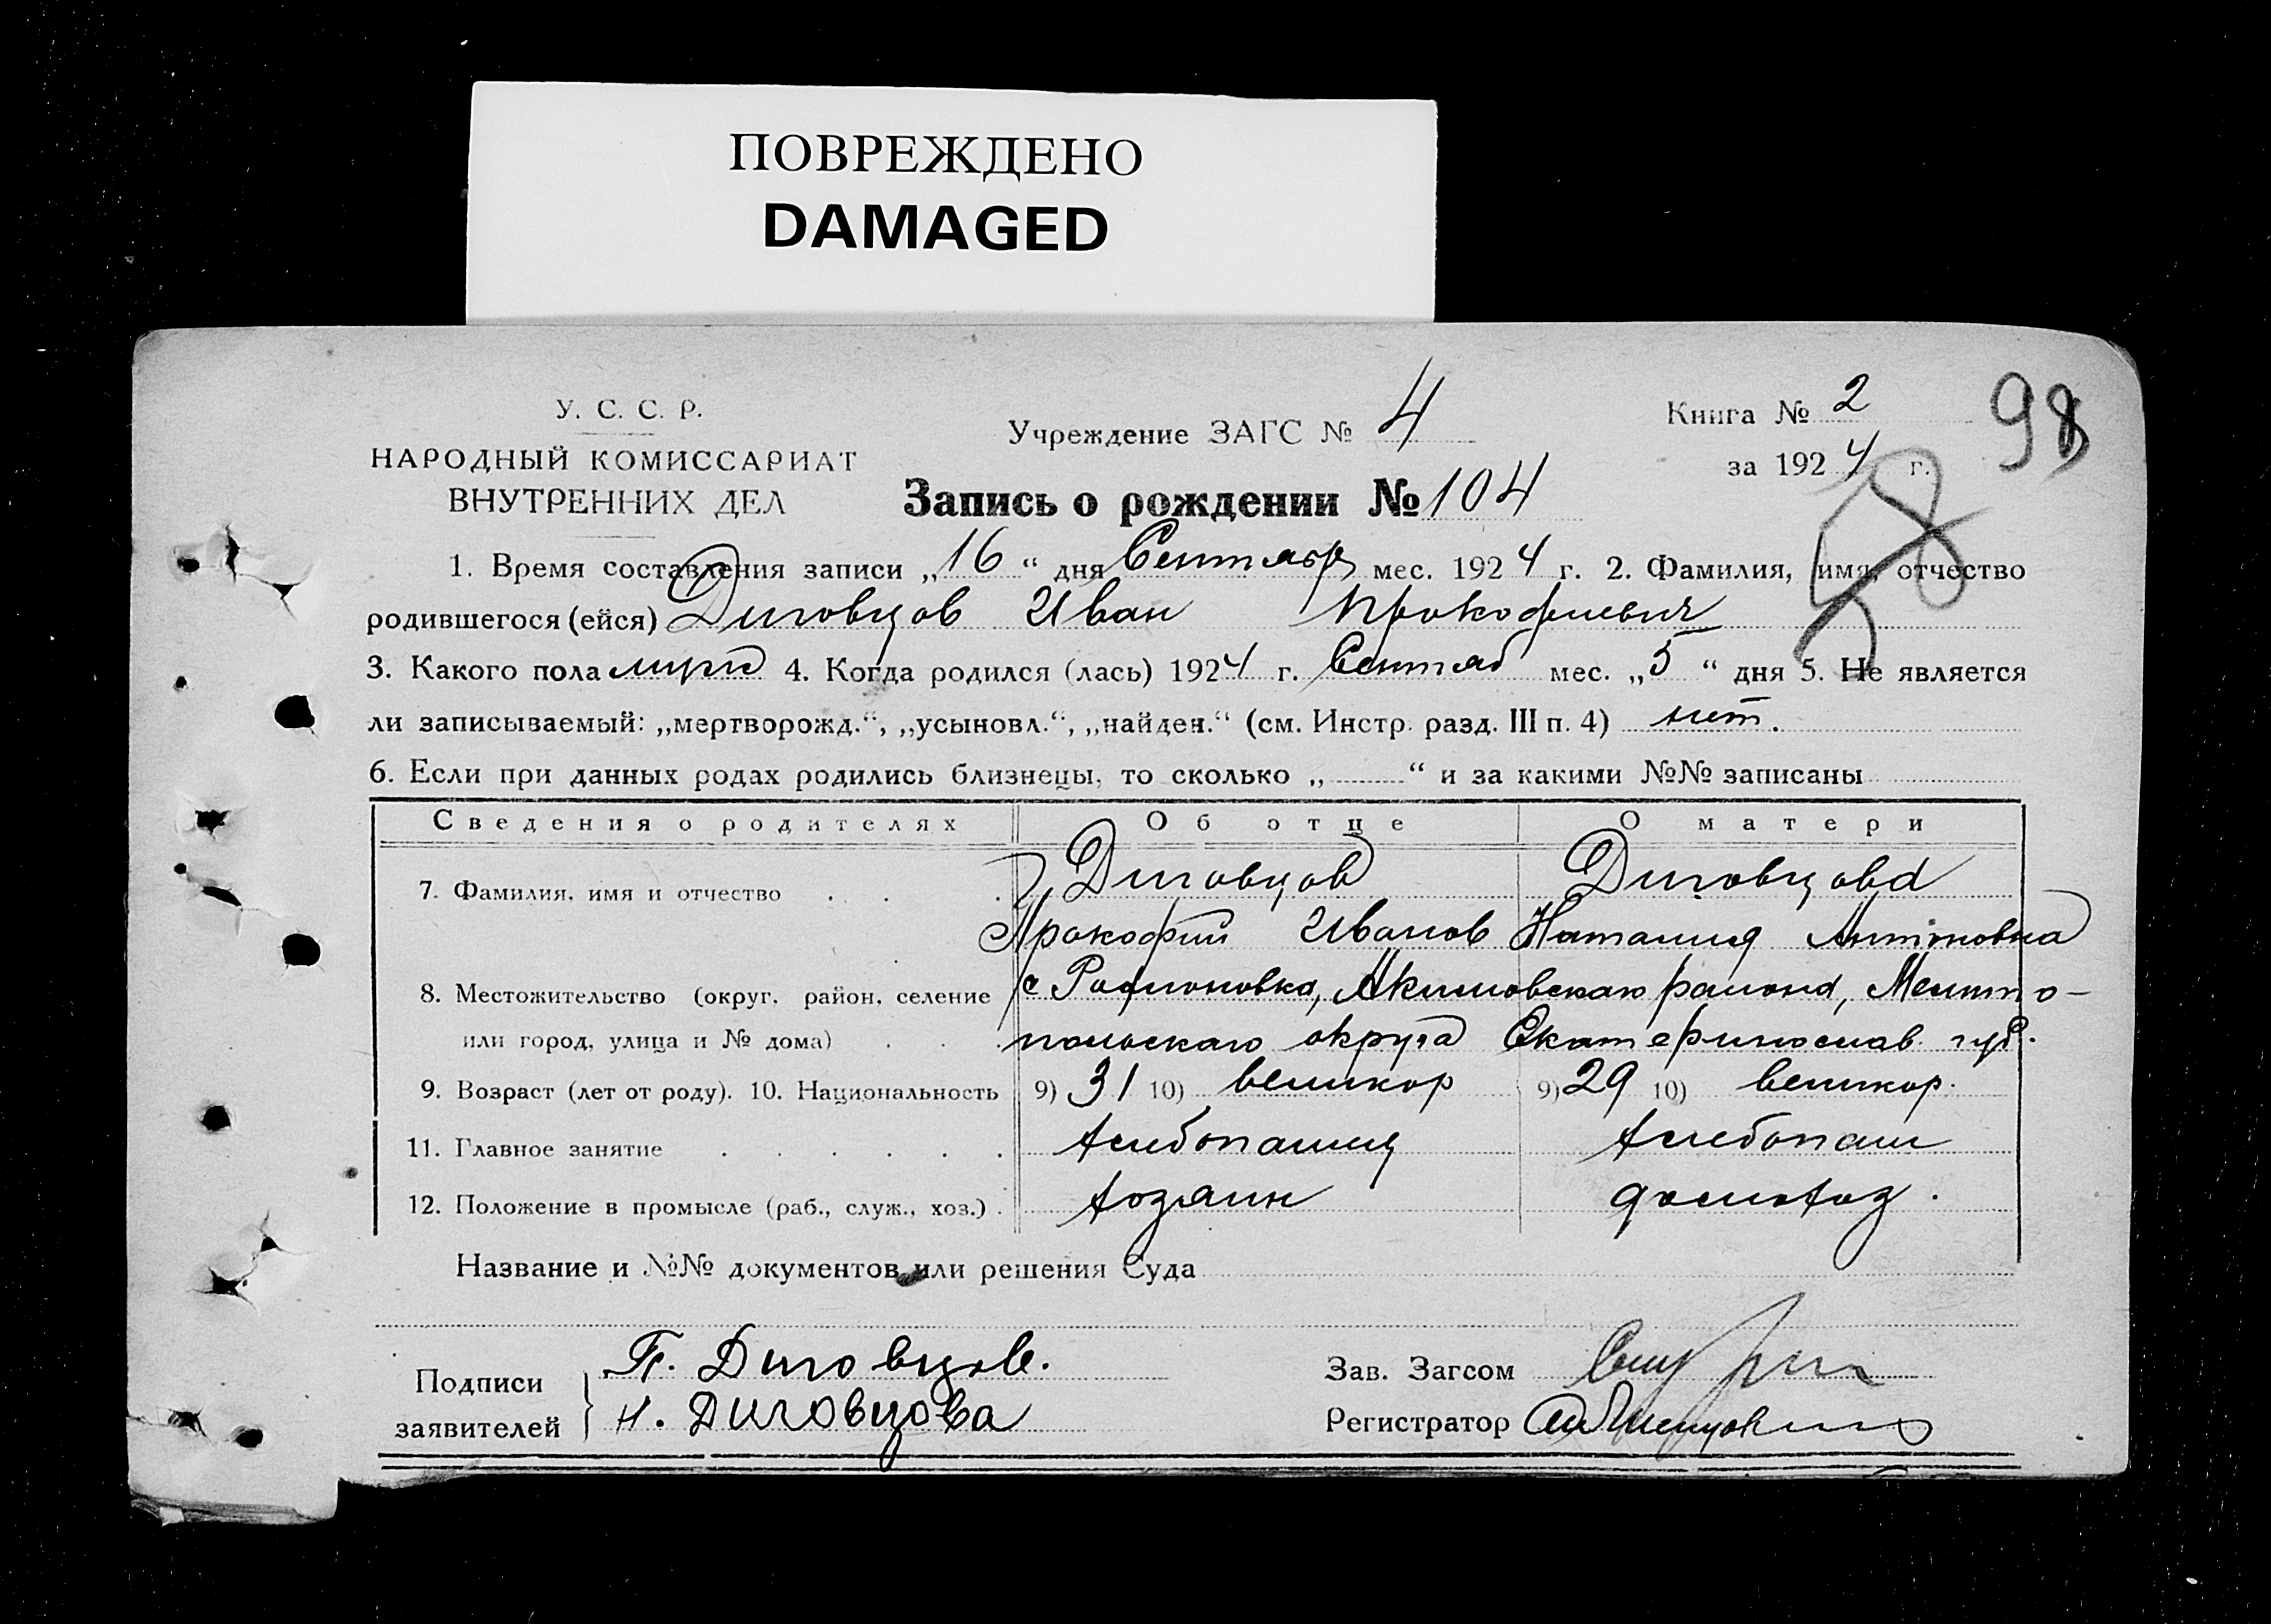 ПОВРЕЖДЕНО
DAMAGED
У. С. С. Р.
НАРОДНЫЙ КОМИССАРИАТ
ВНУТРЕННИХ ДЕЛ
Учреждение ЗАГС № 4
Книга № 2
за 1924 г.
98
Запись о рождении № 104
1. Время составления записи „16“ дня Сентябр мес. 1924 г. 2. Фамилия, имя, отчество
родившегося (ейся) Диговцов Иван Прокофиевич
3. Какого пола муж 4. Когда родился (лась) 1924 г. Сентяб мес. „5“ дня 5. Не является
ли записываемый: „мертворожд.“, „усыновл.“, „найден.“ (см. Инстр. разд. III п. 4) нет.
6. Если при данных родах родились близнецы, то сколько „ “ и за какими №№ записаны
Сведения о родителях Об отце О матери
7. Фамилия, имя и отчество Диговцов Диговцова
Прокофий Иванов Наталия Антоновна
8. Местожительство (округ, район, селение с Родионовка, Акимовскаго района, Мелито-
или город, улица и № дома) польскаго округа Екатеринослав. губ.
9. Возраст (лет от роду). 10. Национальность 9) 31 10) великор 9) 29 10) великор.
11. Главное занятие хлебопашец хлебопаш
12. Положение в промысле (раб., служ., хоз.) хозяин домохоз.
Название и №№ документов или решения Суда
Подписи заявителей
П. Диговцов.
Н. Диговцова
Зав. Загсом
Регистратор